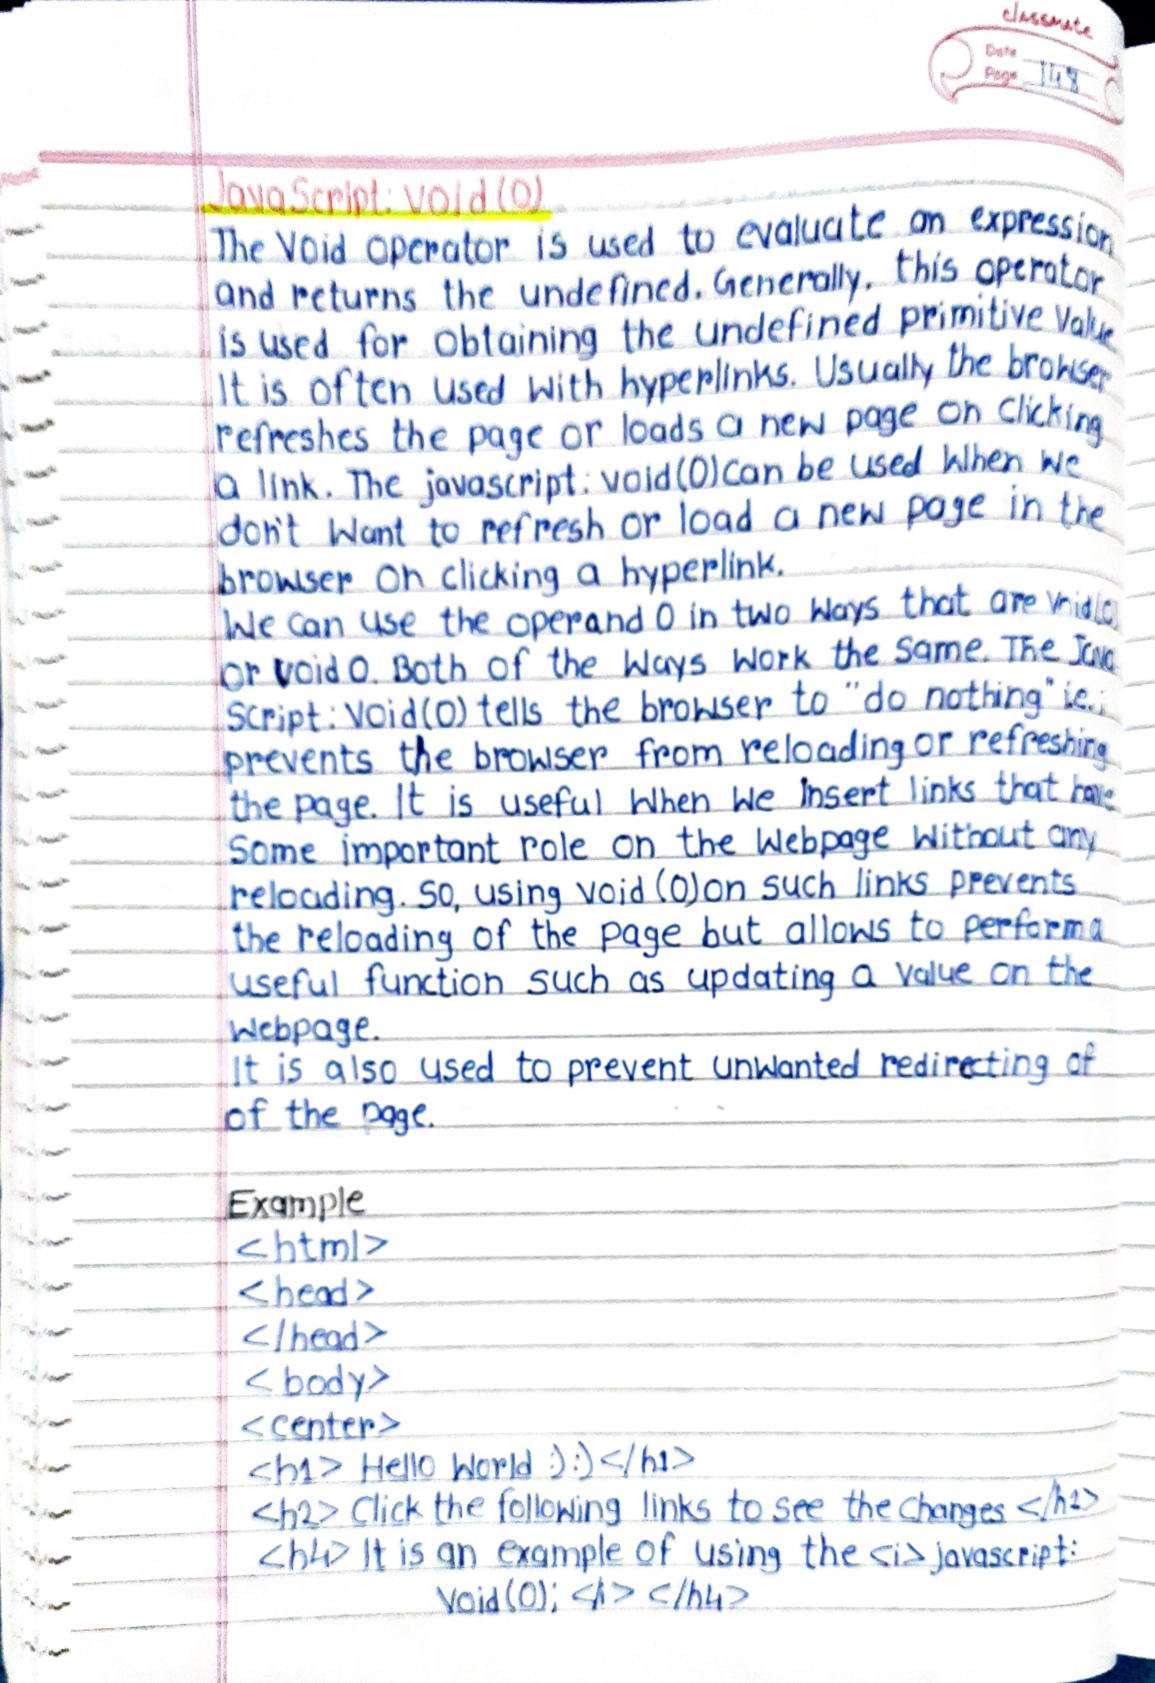 classmate
Date
Page 148
JavaScript: void(0)
The Void operator is used to evaluate an expression
and returns the undefined. Generally, this operator
is used for obtaining the undefined primitive Value
It is often used with hyperlinks. Usually the browser
refreshes the page or loads a new page on clicking
a link. The javascript: void(0) can be used when we
don't want to refresh or load a new page in the
browser on clicking a hyperlink.
We can use the operand 0 in two ways that are void(0)
or void 0. Both of the ways work the same. The Java
Script: void(0) tells the browser to "do nothing" i.e.;
prevents the browser from reloading or refreshing
the page. It is useful when we insert links that have
Some important role on the webpage without any
reloading. So, using void (0) on such links prevents
the reloading of the page but allows to perform a
useful function such as updating a value on the
webpage.
It is also used to prevent unwanted redirecting of
of the page.
Example
<html>
<head>
</head>
<body>
<center>
<h1> Hello World :):)</h1>
<h2> Click the following links to see the changes </h2>
<h4> It is an example of using the <i> javascript:
Void(0); </i> </h4>